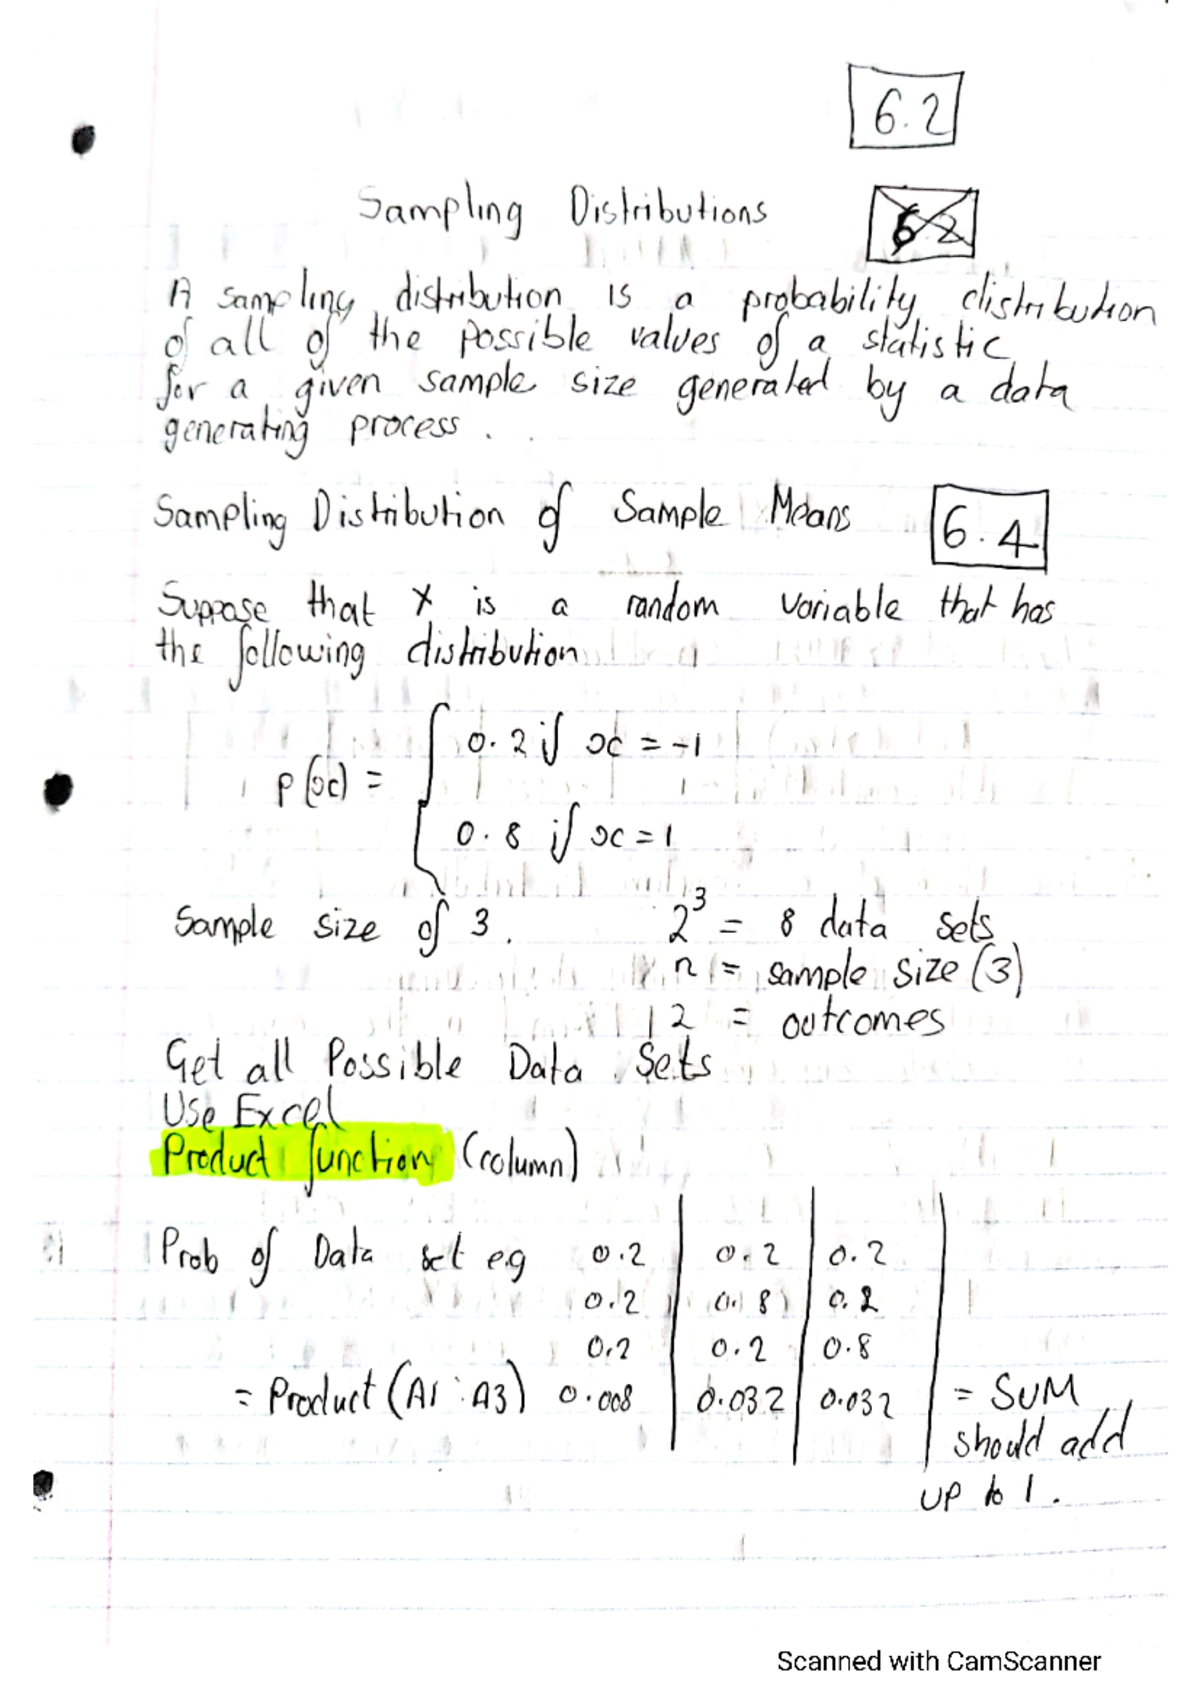 6.2
Sampling Distributions
6.2
A sampling distribution is a probability distribution
of all of the possible values of a statistic
for a given sample size generated by a data
generating process.
Sampling Distribution of Sample Means 6.4
Suppose that X is a random variable that has
the following distribution
p(x) = { 0.2 if x = -1
0.8 if x = 1
Sample size of 3. 2³ = 8 data sets
n = sample size (3)
2 = outcomes
Get all Possible Data Sets
Use Excel
Product function (column)
Prob of Data set e.g 0.2 | 0.2 | 0.2
0.2 | 0.8 | 0.2
0.2 | 0.2 | 0.8
= Product (A1:A3) 0.008 | 0.032 | 0.032 | = SUM
should add
up to 1.
Scanned with CamScanner